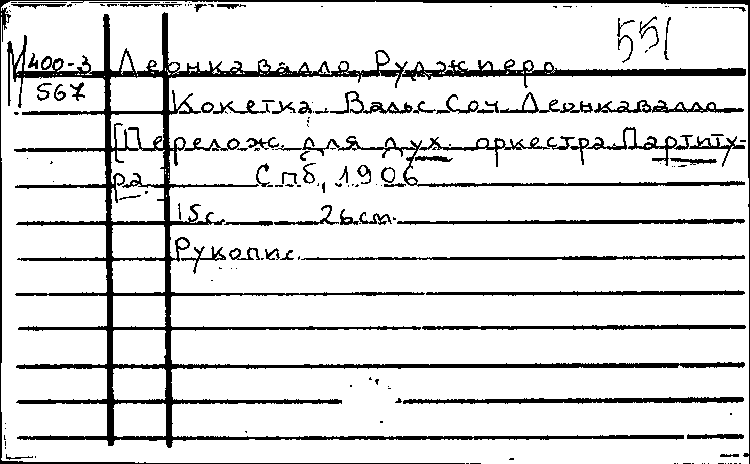 551
М400-3 Леонкавалло, Руджперо
567
Кокетка. Вальс Соч. Леонкавалло
[Перелож. для дух. оркестра. Партиту-
ра.] Спб, 1906
15с. 26см.
Рукопис.